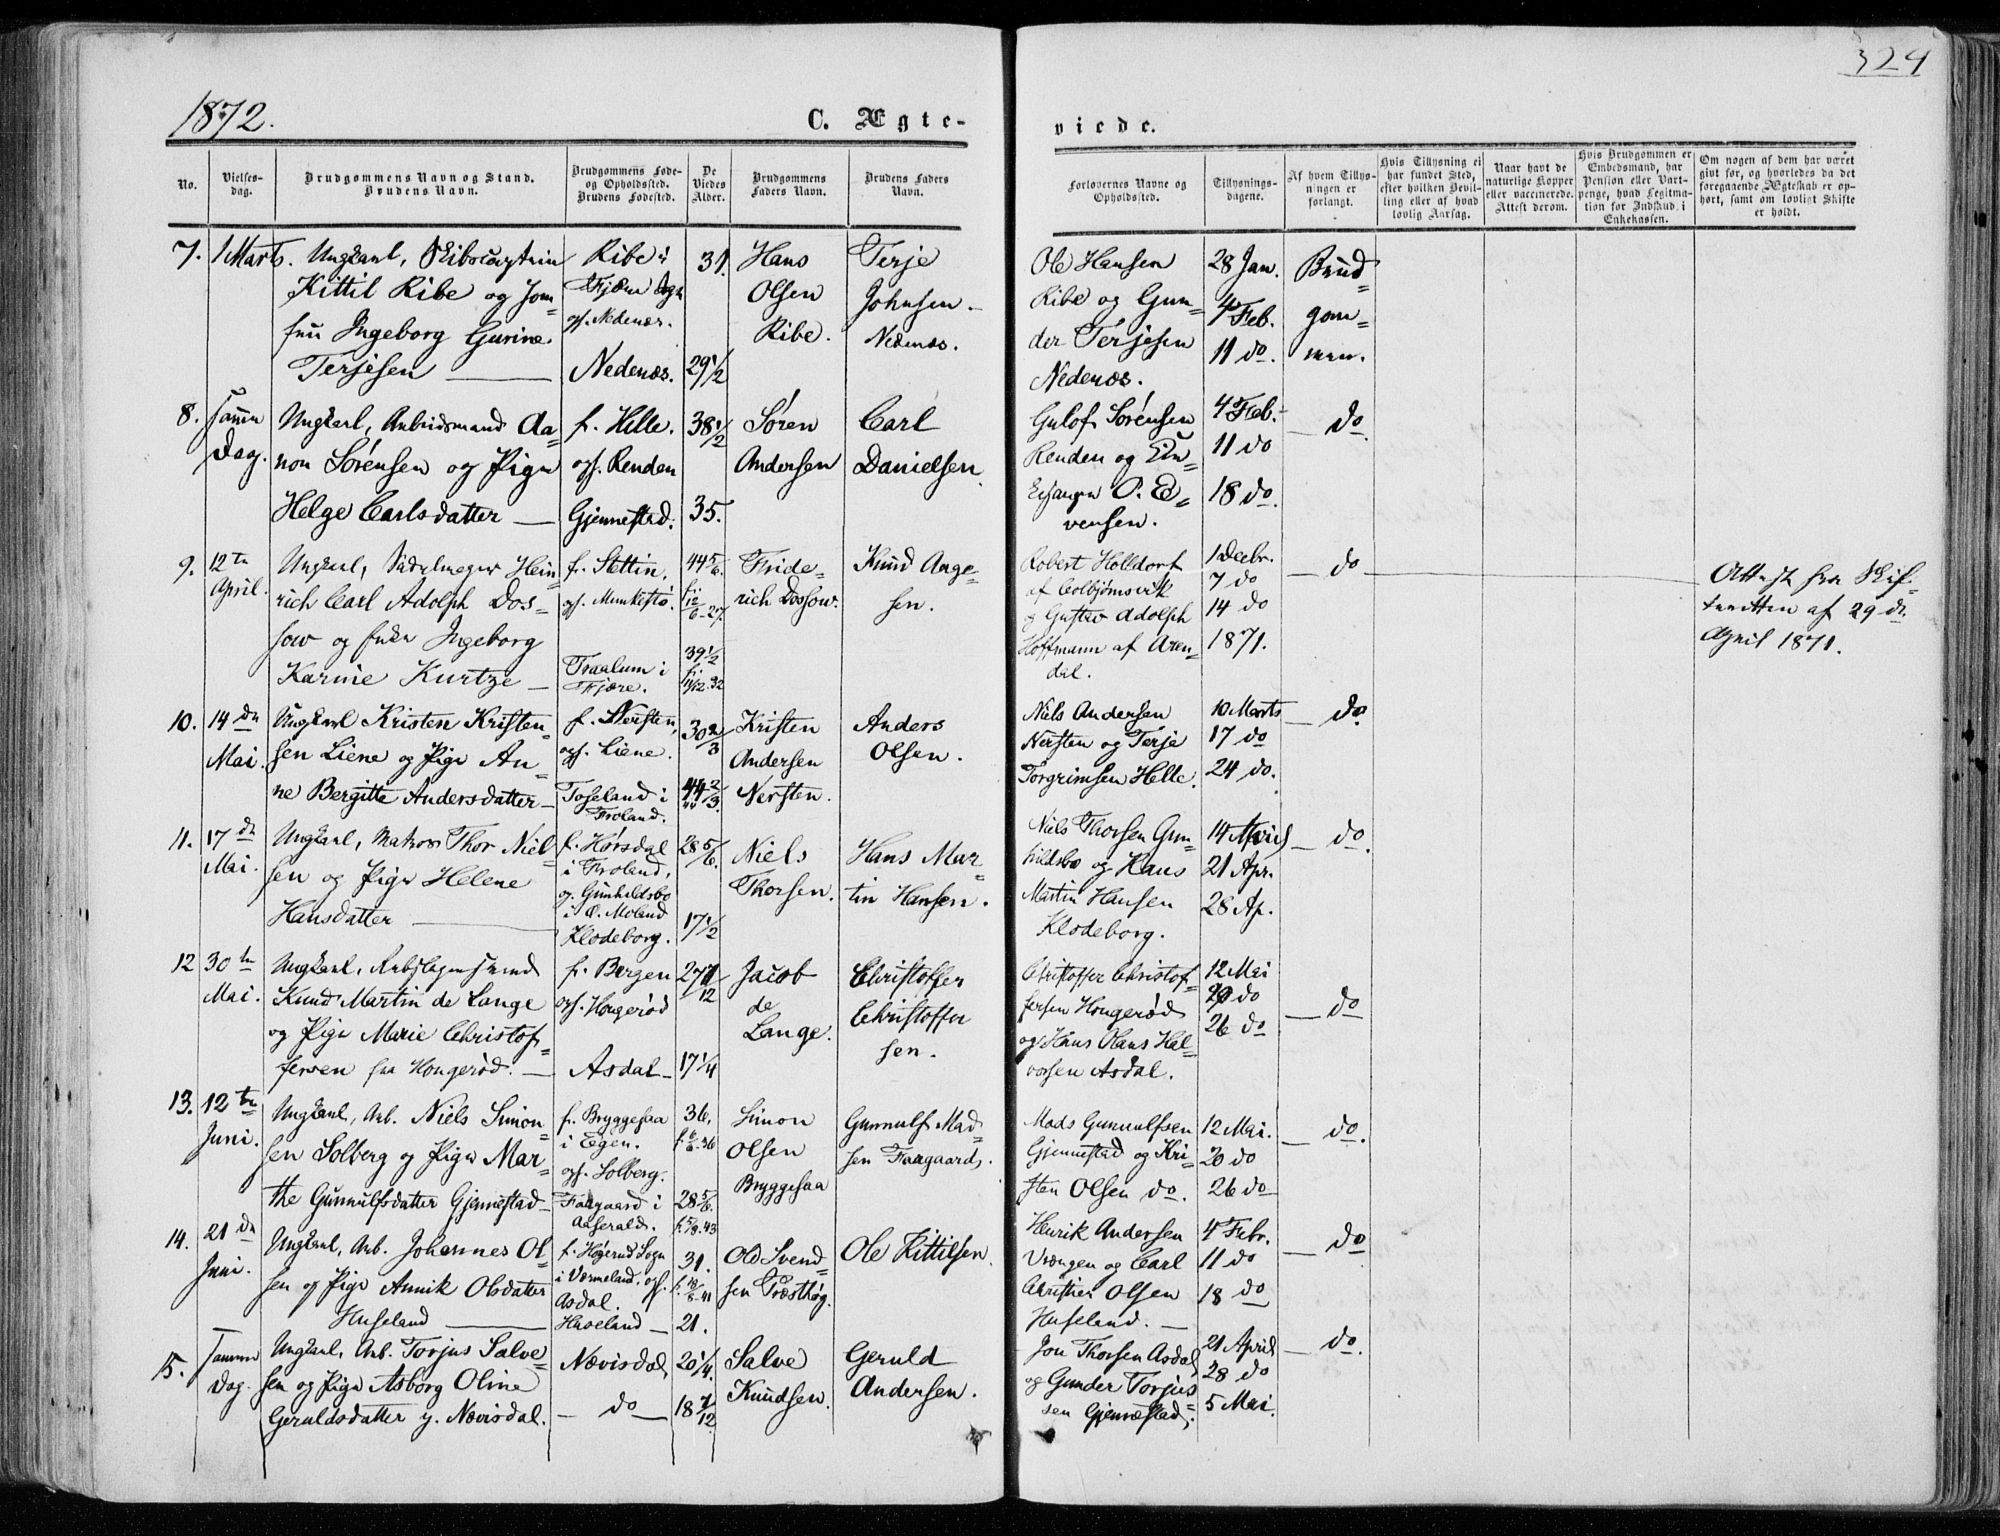 324
1872.
C. Ægte-
viede.
No.
Vielses-
dag.
Brudgommens Navn og Stand.
Brudens Navn.
Brudgommens Føde-
og Opholdssted.
Brudens Fødested.
De
Viedes
Alder.
Brudgommens
Faders Navn.
Brudens Faders
Navn.
Forlovernes Navne og
Opholdssted.
Tillysnings-
dagene.
Af hvem Tillys-
ningen er
forlangt.
Hvis Tillysning ei
har fundet Sted,
efter hvilken Bevil-
ling eller af hvad
lovlig Aarsag.
Naar havt de
naturlige Kopper
eller vaccinerede.
Attest derom.
Hvis Brudgommen er
Embedsmand, har
Pension eller Vart-
penge, hvad Legitima-
tion for Indskud i
Enkekassen.
Om nogen af dem har været
gift før, og hvorledes da det
foregaaende Ægteskab er op-
hørt, samt om lovligt Skifte
er holdt.
7.
1 Marts.
Ungkarl, Skibscaptein
Kittil Ribe og Jom-
fru Ingeborg Gurine
Terjesen
Ribe i
Fjære Sogn
opf. Nedenæs.
Nedenæs.
31.
29 1/2
Hans
Olsen
Ribe.
Terje
Johnsen
Nedenæs.
Ole Hansen
Ribe og Gun-
der Terjesen
Nedenæs.
28 Jan.
4 Feb.
11 do.
Brud-
gom-
men.
8.
Samme
Dag.
Ungkarl, Arbeidsmand Aa-
non Sørensen og Pige
Helge Carlsdatter
f. Helle.
opf. Renden
Gjennestad.
38 1/2
35.
Søren
Andersen
Carl
Danielsen.
Gulof Sørensen
Renden og
P. Ed-
vensen.
4 Feb.
11 do
18 do.
do.
9.
12te
April.
Ungkarl, Sadelmager Hein-
rich Carl Adolph Dos-
sow og Enke Ingeborg
Karine Kurtze
f. Stettin.
opf. Munkestø.
Traalum i
Fjære.
44 5/6.
f. 12/6-27.
39 1/2
f. 11/12.32
Fride-
rich Dossow.
Knud Aage-
sen.
Robert Holldorf
af Colbjørnsvik
og Gustav Adolph
Hoffmann af Aren-
dal.
1 Decbr.
7 do
14 do
1871.
do
Attest fra Skif-
teretten af 29 de
April 1871.
10.
14 de
Mai.
Ungkarl Kristen Kristen-
sen Liene og Pige An-
ne Bergitte Andersdatter
f. Nersten,
opf. Liene.
Toseland i
Froland.
30 2/3
44 2/3.
Kristen
Andersen
Nersten.
Anders
Olsen.
Niels Andersen
Nersten og Terje
Torgrimsen Helle.
10 Marts
17 do
24 do.
do.
11.
17 de
Mai.
Ungkarl, Matros Thor Niel-
sen og Pige Helene
Hansdatter
f. Hørsdal
i Froland,
og. Gunheldsbo
i Ø. Moland
Klodeborg.
28 5/6.
17 1/2
Niels
Thorsen.
Hans Mar-
tin Hansen.
Niels Thorsen Gun-
hildsbo og Hans
Martin Hansen
Klodeborg.
14 April
21 Apr.
28 Ap.
do.
12
30te
Mai.
Ungkarl, Rebslagersvend
Knud Martin de Lange
og Pige Marie Christof-
fersen fra Hongerød.
f. Bergen
opf. Hongerød
Asdal
27 1/12
17 1/4
Jacob
de
Lange.
Christoffer
Christoffer
sen.
Christoffer Christof-
fersen Hongerød
og Hans Hans Hal-
vorsen Asdal.
12 Mai
20 do
26 do
do
13.
12te
Juni.
Ungkarl, Arb. Niels Simon-
sen Solberg og Pige Mar-
the Gunnulfsdatter Gjennestad
f. Bryggesaa
i Egen.
opf. Solberg.
Faagaard i
Aaserald.
36.
f. 6/6.36
28 5/6.
f. 5/8.43
Simon
Olsen
Bryggesaa
Gunnulf Mad-
sen Faagaard.
Mads Gunnulfsen
Gjennestad og Kri-
sten Olsen do.
12 Mai.
20 do
26 do
do.
14.
21 de
Juni.
Ungkarl, Arb. Johannes Ol-
sen og Pige Annik Olsdatter
Huseland
f. Høgerud Sogn
i Værmeland, opf.
Asdal.
Huseland
31.
f. 18/8-41
21.
Ole Svend-
sen Præsthøg.
Ole Kittilsen.
Henrik Andersen
Vrængen og Carl
Christian Olsen
Huseland.
4 Febr.
11 do
18 do
do
15.
Samme
Dag.
Ungkarl, Arb. Torjus Salve-
sen og Pige Asborg Oline
Geruldsdatter y. Nævisdal.
Nævisdal
do
20 1/4.
18 7/12.
Salve
Knudsen.
Geruld
Andersen.
Jon Thorsen Asdal
og Gunder Torjus-
sen Gjennestad.
21 April
28 do
5 Mai.
do.